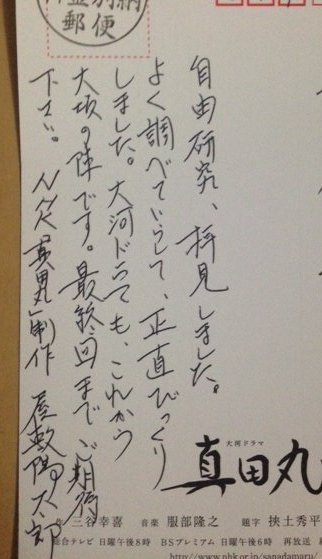 料金別納
郵便
自由研究、拝見しました。
よく調べていらして、正直びっくり
しました。大河ドラマでも、これから
大坂の陣です。最終回まで、ご期待
下さい。NHK「真田丸」制作 屋敷陽太郎
大河ドラマ
真田丸
三谷幸喜 音楽 服部隆之 題字 挾土秀平
総合テレビ 日曜午後8時 BSプレミアム 日曜午後6時 再放送
http://www.nhk.or.jp/sanadamaru/